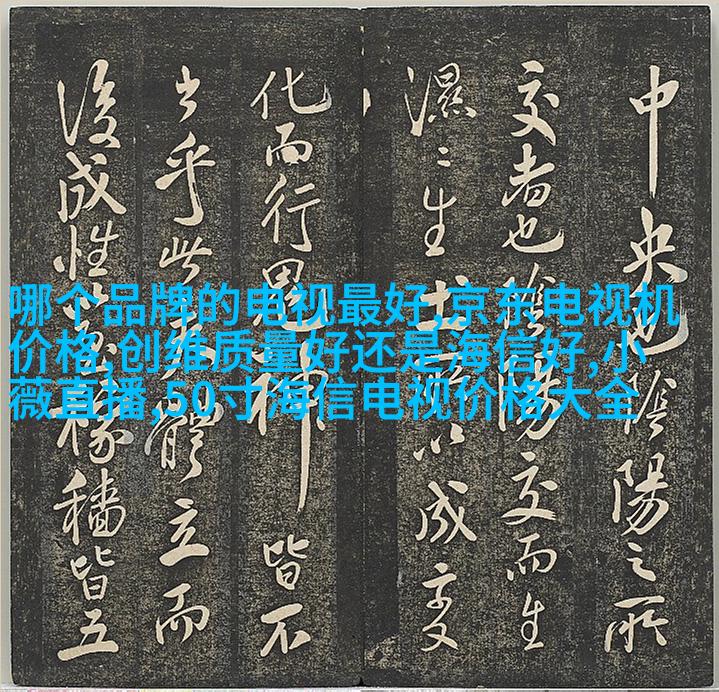 哪个品牌的电视最好,京东电视机
价格,创维质量好还是海信好,小
薇直播,50寸海信电视价格大全
中央也陰陽之所
交者也陰陽交而生
濕〻生土以成变
化而行鬼神皆不
乎此體立而
後成性稼穡皆五